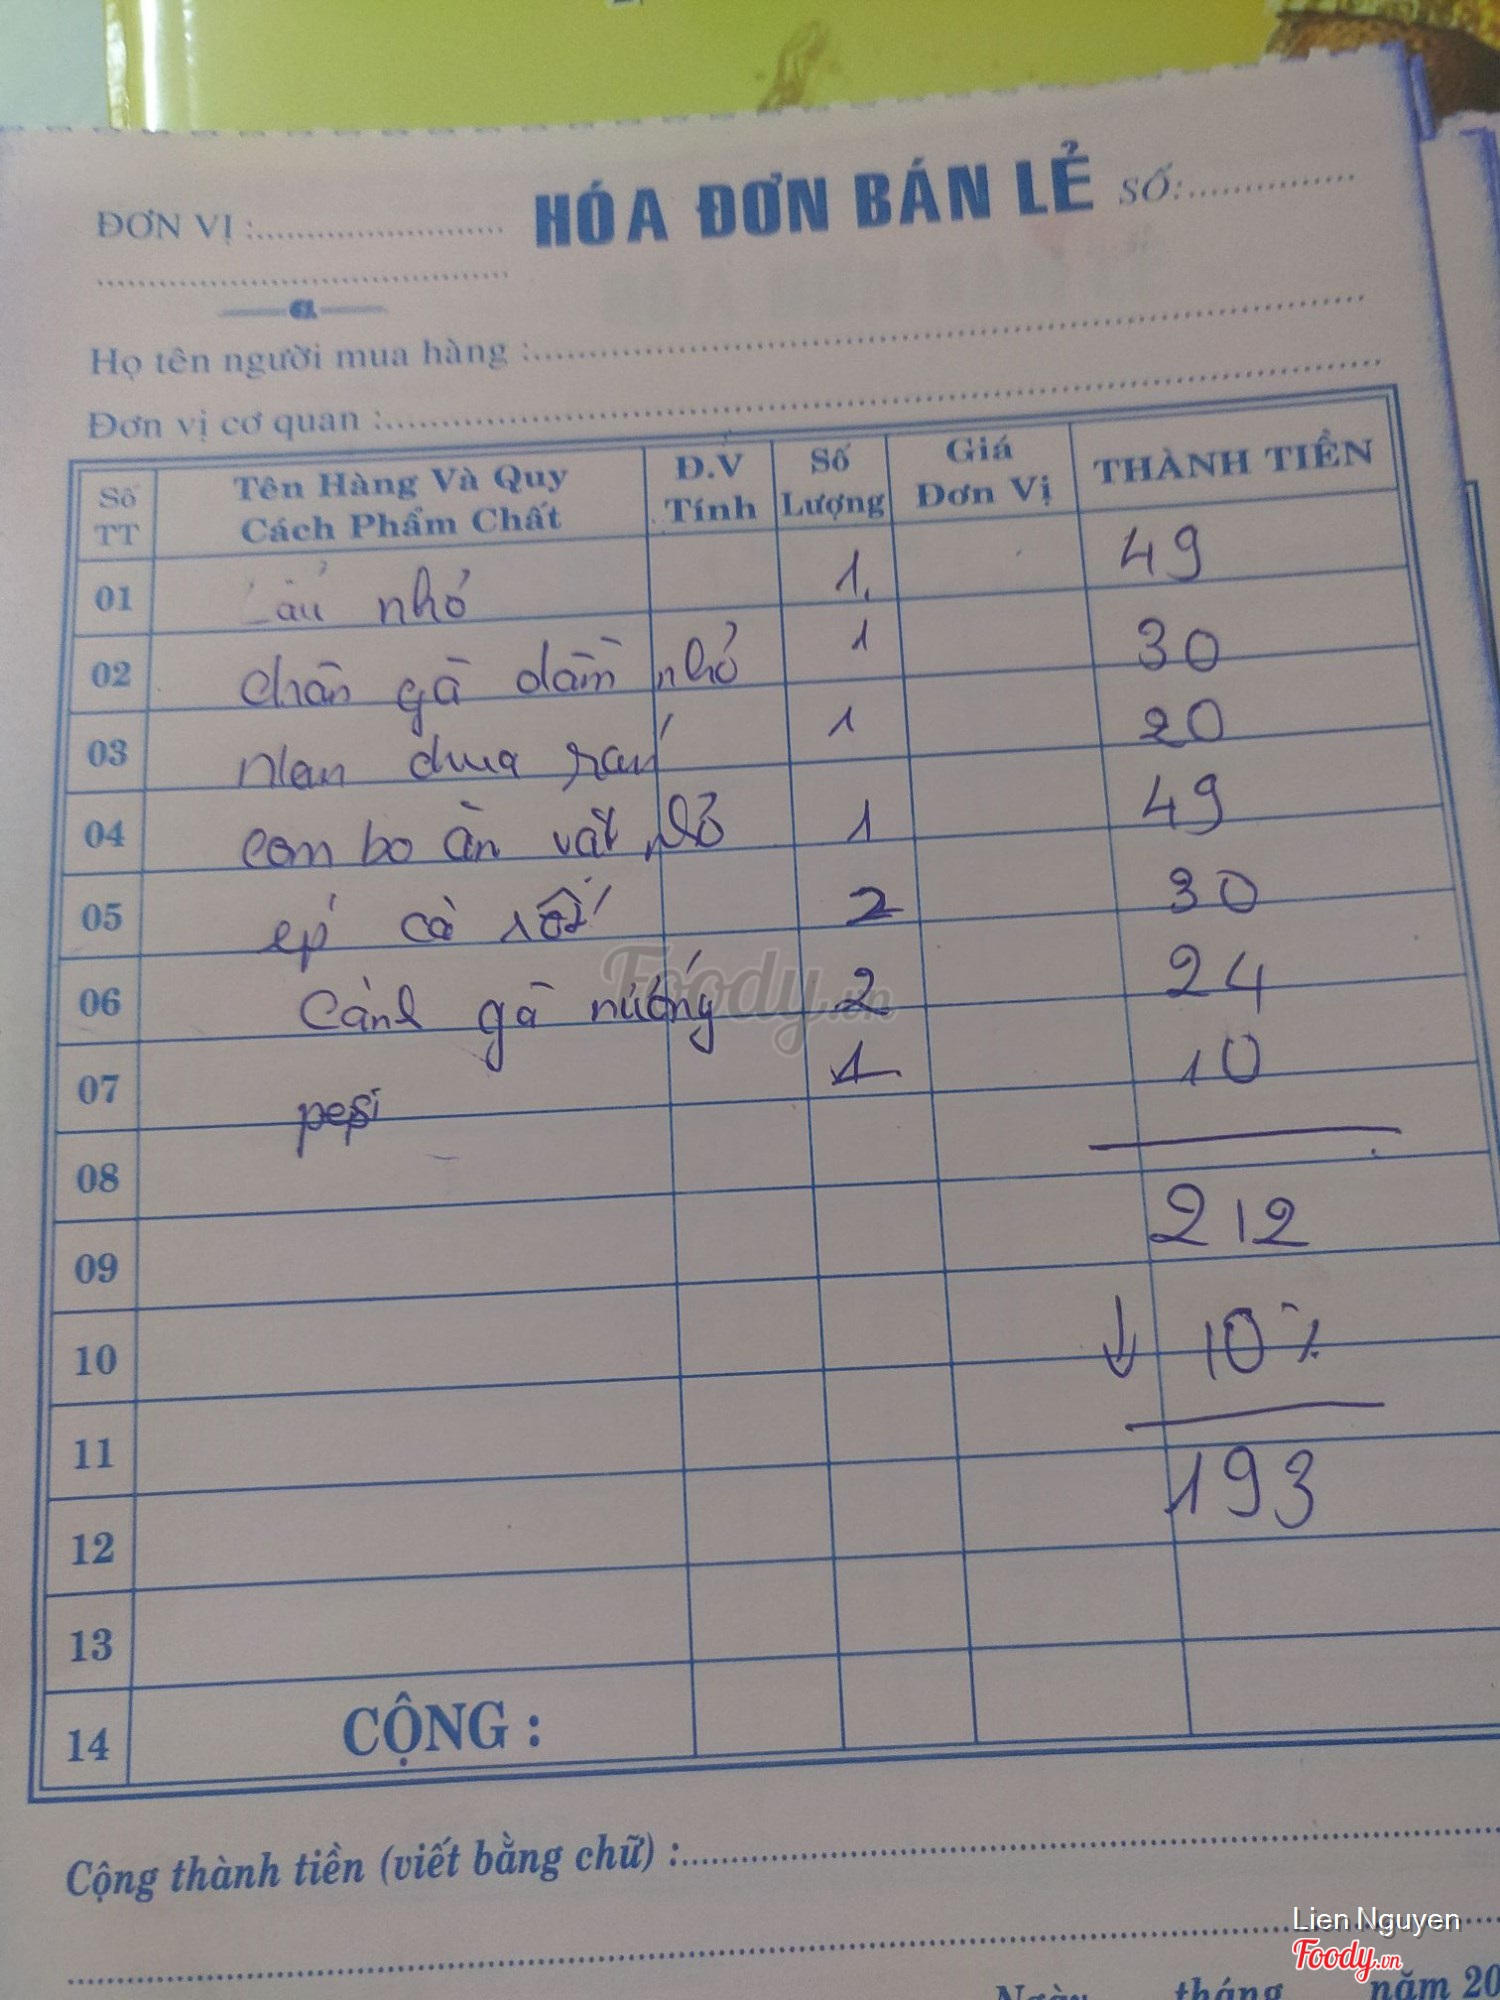 HÓA ĐƠN BÁN LẺ
ĐƠN VỊ :
SỐ:
Họ tên người mua hàng :
Đơn vị cơ quan :
Số TT Tên Hàng Và Quy Cách Phẩm Chất Đ.V Tính Số Lượng Giá Đơn Vị THÀNH TIỀN
01 Lẩu nhỏ 1 49
02 chân gà dầm nhỏ 1 30
03 nem chua rán 1 20
04 com bo ăn vặt nhỏ 1 49
05 ép cà rốt 2 30
06 Cánh gà nướng 2 24
07 pepsi 1 10
08
212
09
10 ↓ 10%
11 193
12
13
14 CỘNG :
Cộng thành tiền (viết bằng chữ) :
Ngày tháng năm 20
Foody.vn
Lien Nguyen
Foody.vn